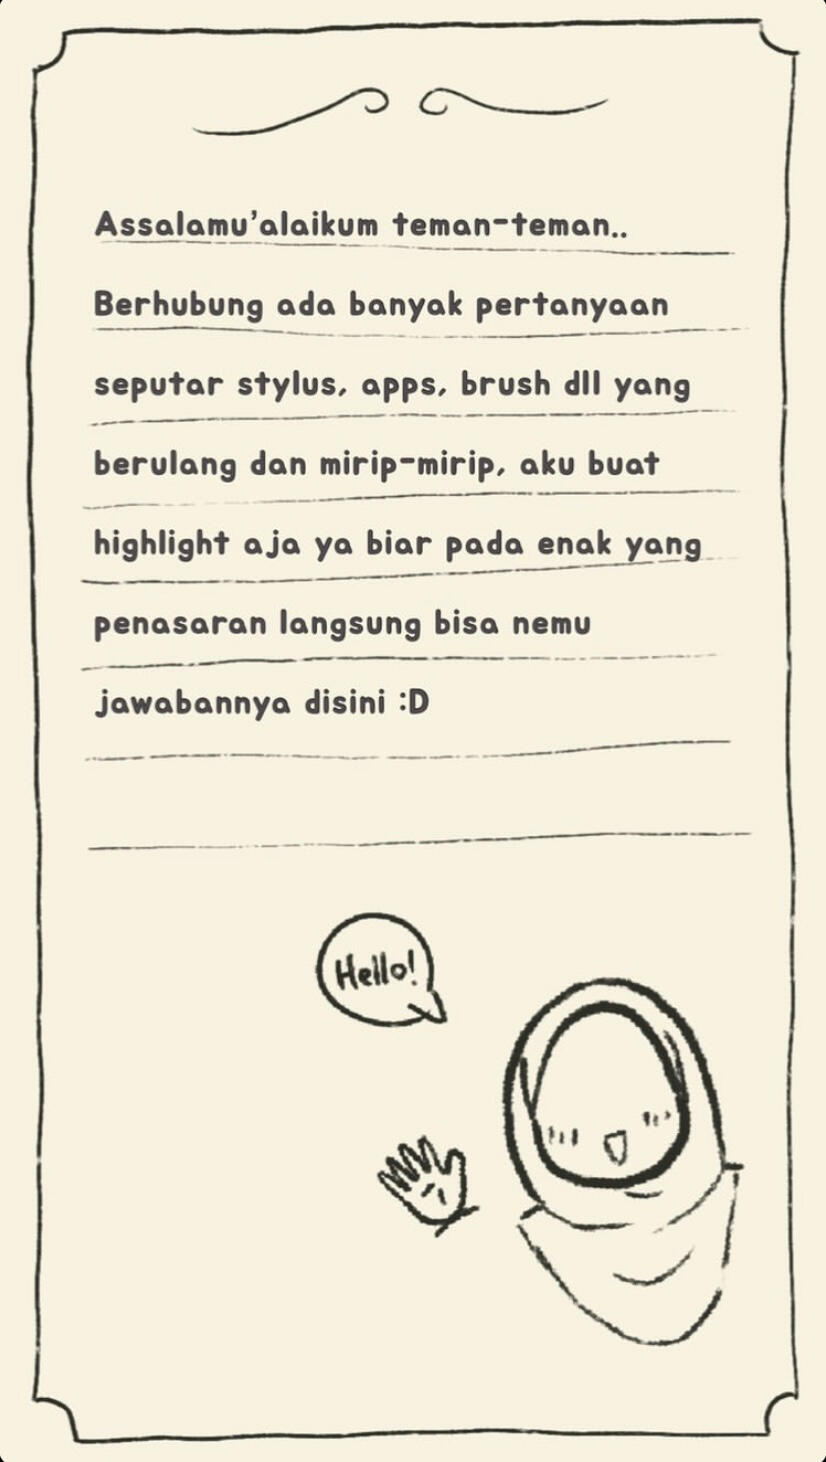 Assalamu'alaikum teman-teman..
Berhubung ada banyak pertanyaan
seputar stylus, apps, brush dll yang
berulang dan mirip-mirip, aku buat
highlight aja ya biar pada enak yang
penasaran langsung bisa nemu
jawabannya disini :D
Hello!